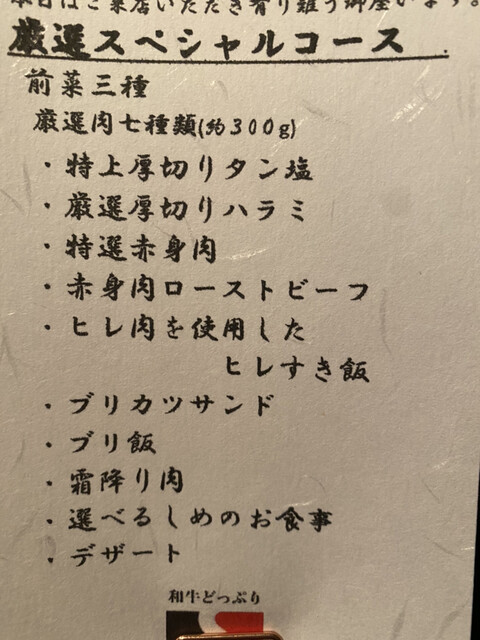 本日はご来店いただき有り難う御座います。
厳選スペシャルコース
前菜三種
厳選肉七種類(約300g)
・特上厚切りタン塩
・厳選厚切りハラミ
・特選赤身肉
・赤身肉ローストビーフ
・ヒレ肉を使用した
ヒレすき飯
・ブリカツサンド
・ブリ飯
・霜降り肉
・選べるしめのお食事
・デザート
和牛どっぷり